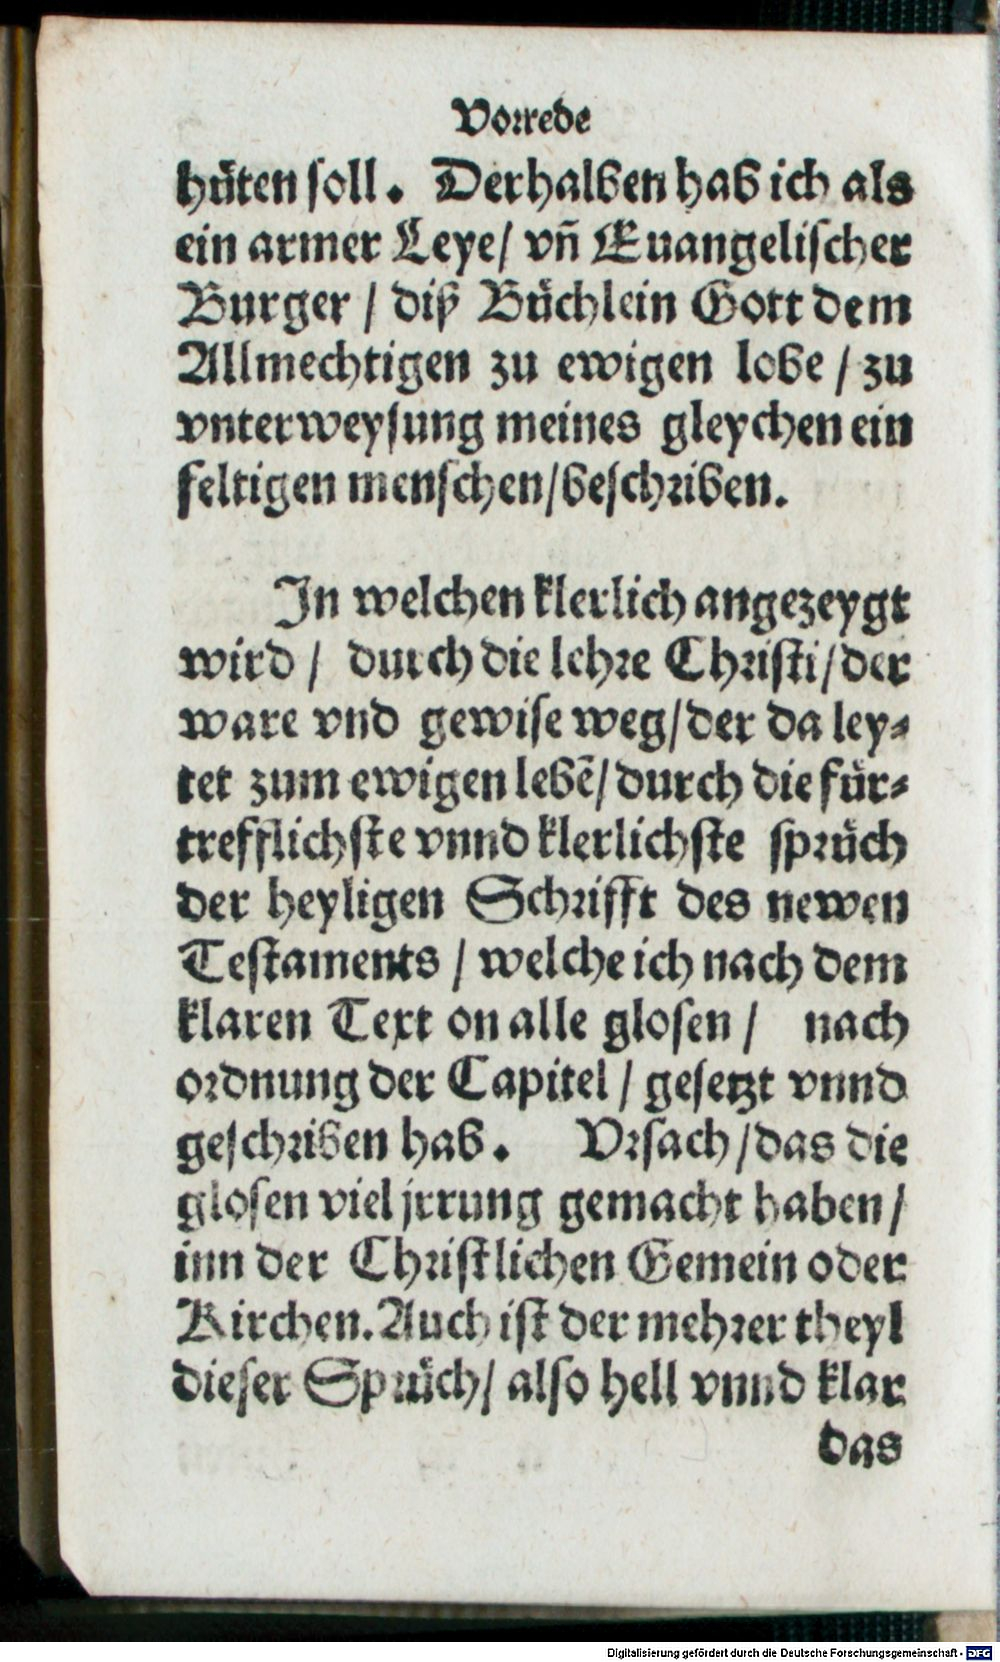 Vorrede
hüten soll. Derhalben hab ich als
ein armer Leye/ vñ Euangelischer
Burger / diß Büchlein Gott dem
Allmechtigen zu ewigen lobe / zu
vnterweysung meines gleychen ein
feltigen menschen/beschriben.
In welchen klerlich angezeygt
wird / durch die lehre Christi/der
ware vnd gewise weg/der da ley⸗
tet zum ewigen lebẽ/durch die für⸗
trefflichste vnnd klerlichste sprüch
der heyligen Schrifft des newen
Testaments / welche ich nach dem
klaren Text on alle glosen / nach
ordnung der Capitel / gesetzt vnnd
geschriben hab. Vrsach/das die
glosen viel jrrung gemacht haben/
inn der Christlichen Gemein oder
Kirchen. Auch ist der mehrer theyl
dieser Sprüch/ also hell vnnd klar
das
Digitalisierung gefördert durch die Deutsche Forschungsgemeinschaft - DFG